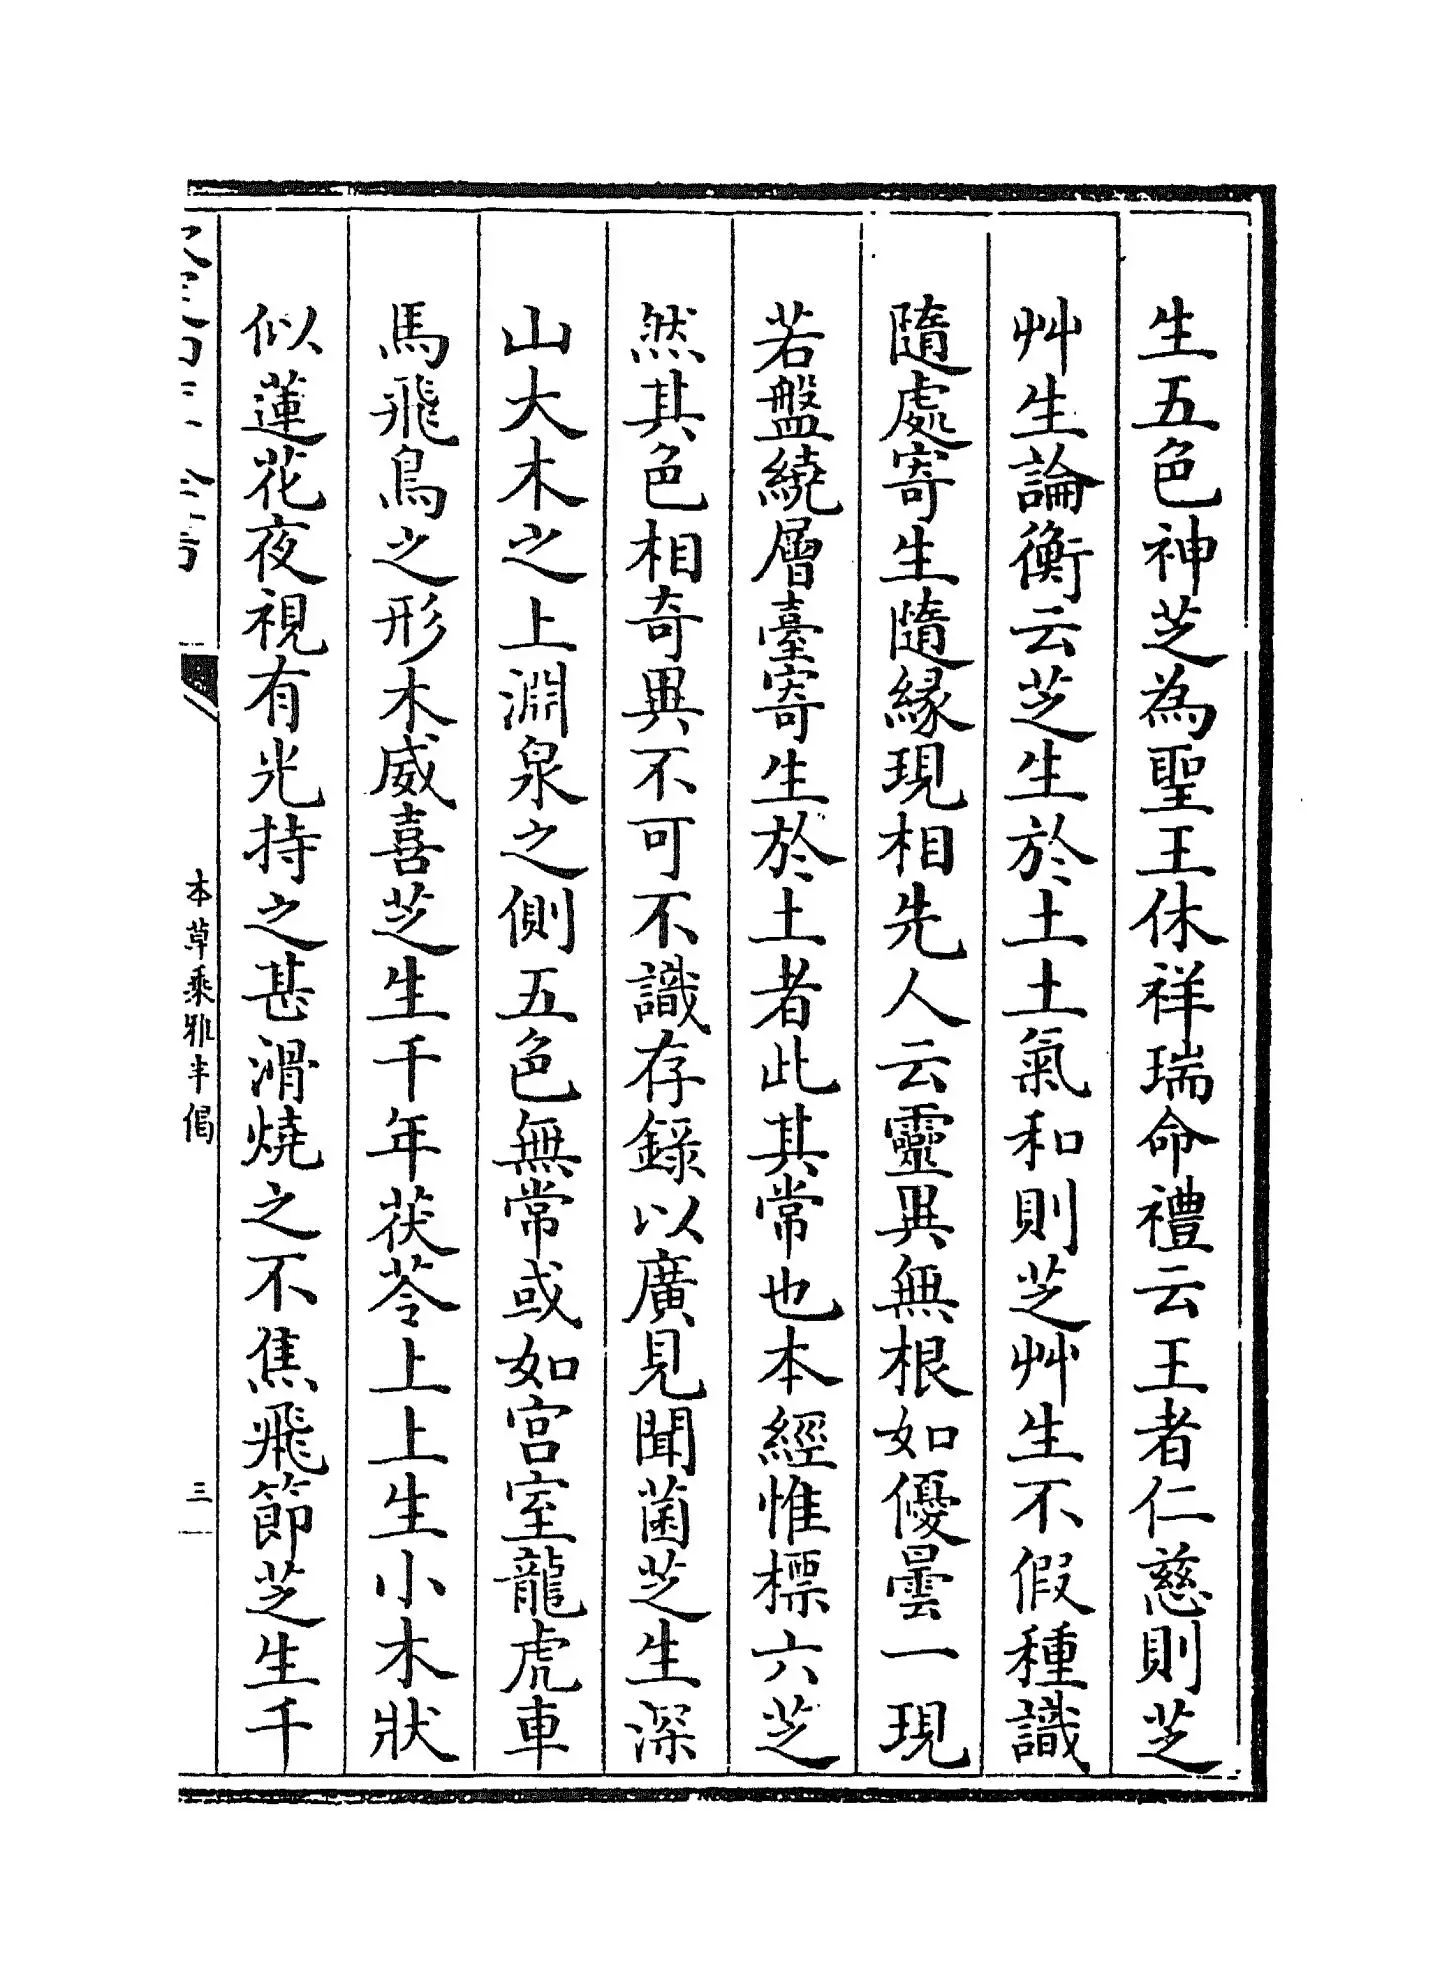 生五色神芝為聖王休祥瑞命禮云王者仁慈則芝
艸生論衡云芝生於土土氣和則芝艸生不假種識
隨處寄生隨緣現相先人云靈異無根如優曇一現
若盤繞層臺寄生於土者此其常也本經惟標六芝
然其色相奇異不可不識存錄以廣見聞菌芝生深
山大木之上淵泉之側五色無常或如宮室龍虎車
馬飛鳥之形木威喜芝生千年茯苓上上生小木狀
似蓮花夜視有光持之甚滑燒之不焦飛節芝生千
本草乘雅半偈
三